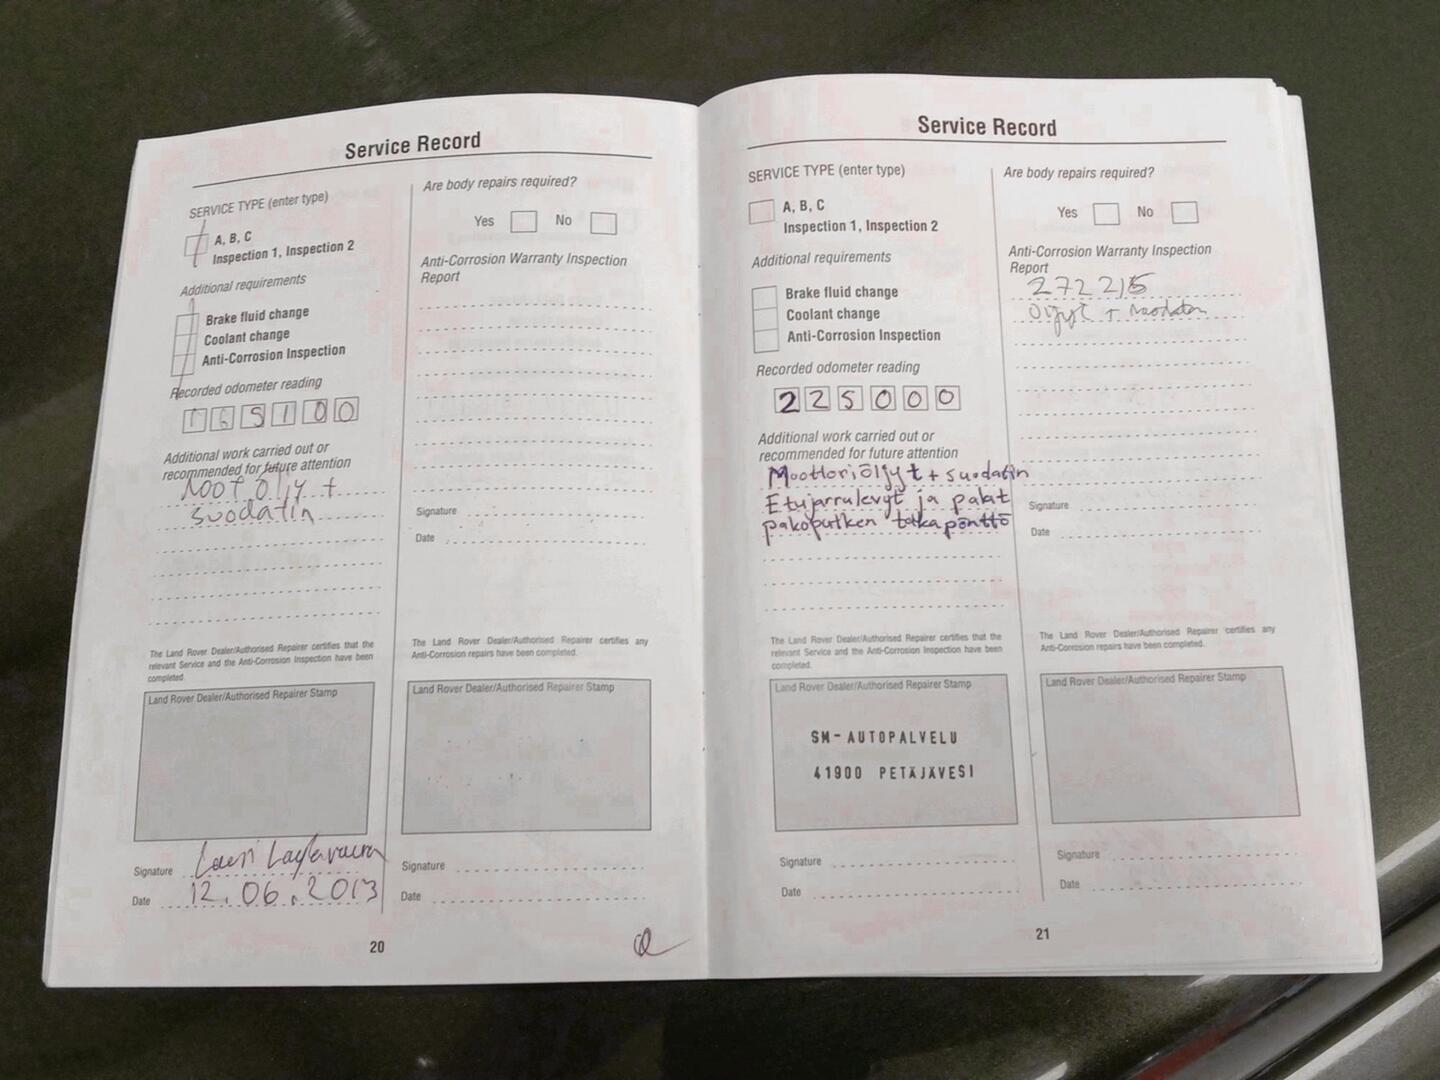 Service Record
SERVICE TYPE (enter type)
A, B, C
Inspection 1, Inspection 2
Additional requirements
Brake fluid change
Coolant change
Anti-Corrosion Inspection
Recorded odometer reading
165100
Additional work carried out or
recommended for future attention
Moot öljy +
suodatin
The Land Rover Dealer/Authorised Repairer certifies that the
relevant Service and the Anti-Corrosion Inspection have been
completed.
Land Rover Dealer/Authorised Repairer Stamp
Signature Lauri
Date 12.06.2013
Are body repairs required?
Yes No
Anti-Corrosion Warranty Inspection
Report
Signature
Date
The Land Rover Dealer/Authorised Repairer certifies any
Anti-Corrosion repairs have been completed.
Land Rover Dealer/Authorised Repairer Stamp
Signature
Date
20
Service Record
SERVICE TYPE (enter type)
A, B, C
Inspection 1, Inspection 2
Additional requirements
Brake fluid change
Coolant change
Anti-Corrosion Inspection
Recorded odometer reading
225000
Additional work carried out or
recommended for future attention
Moottoriöljyt + suodatin
Etujarrulevyt ja palat
pakoputken takapönttö
The Land Rover Dealer/Authorised Repairer certifies that the
relevant Service and the Anti-Corrosion Inspection have been
completed.
Land Rover Dealer/Authorised Repairer Stamp
SM-AUTOPALVELU
41900 PETÄJÄVESI
Signature
Date
Are body repairs required?
Yes No
Anti-Corrosion Warranty Inspection
Report
272215
Öljyt + suodatin
Signature
Date
The Land Rover Dealer/Authorised Repairer certifies any
Anti-Corrosion repairs have been completed.
Land Rover Dealer/Authorised Repairer Stamp
Signature
Date
21